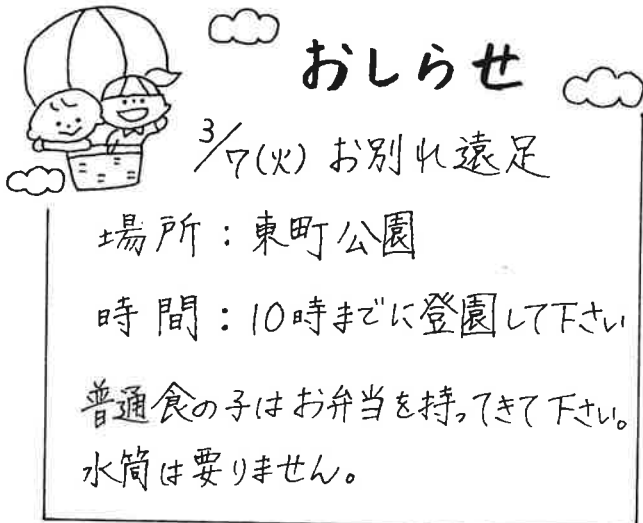 おしらせ
3/7(火) お別れ遠足
場所：東町公園
時間：10時までに登園して下さい
普通食の子はお弁当を持ってきて下さい。
水筒は要りません。